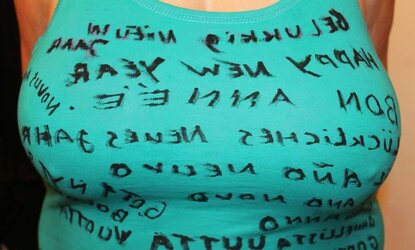 GELUKKIG NIEUW
JAAR
HAPPY NEW YEAR
BON ANNÉE
LÜCKLICHES NEUES JAHR
AÑO NUEVO
ANO NOVO
ANNO
UUTTA VUOTTA